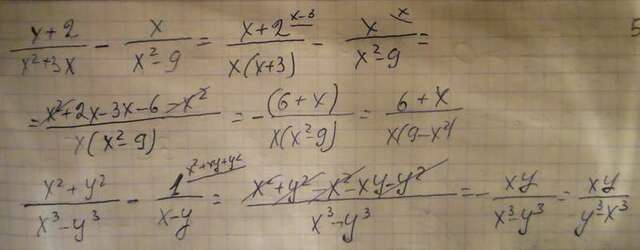 (x+2)/(x²+3x) - x/(x²-9) = (x+2^(x-3))/(x(x+3)) - x^(x)/(x²-9) =
= (x²+2x-3x-6-x²)/(x(x²-9)) = -(6+x)/(x(x²-9)) = (6+x)/(x(9-x²)
(x²+y²)/(x³-y³) - 1^(x²+xy+y²)/(x-y) = (x²+y²-x²-xy-y²)/(x³-y³) = -xy/(x³-y³) = xy/(y³-x³)